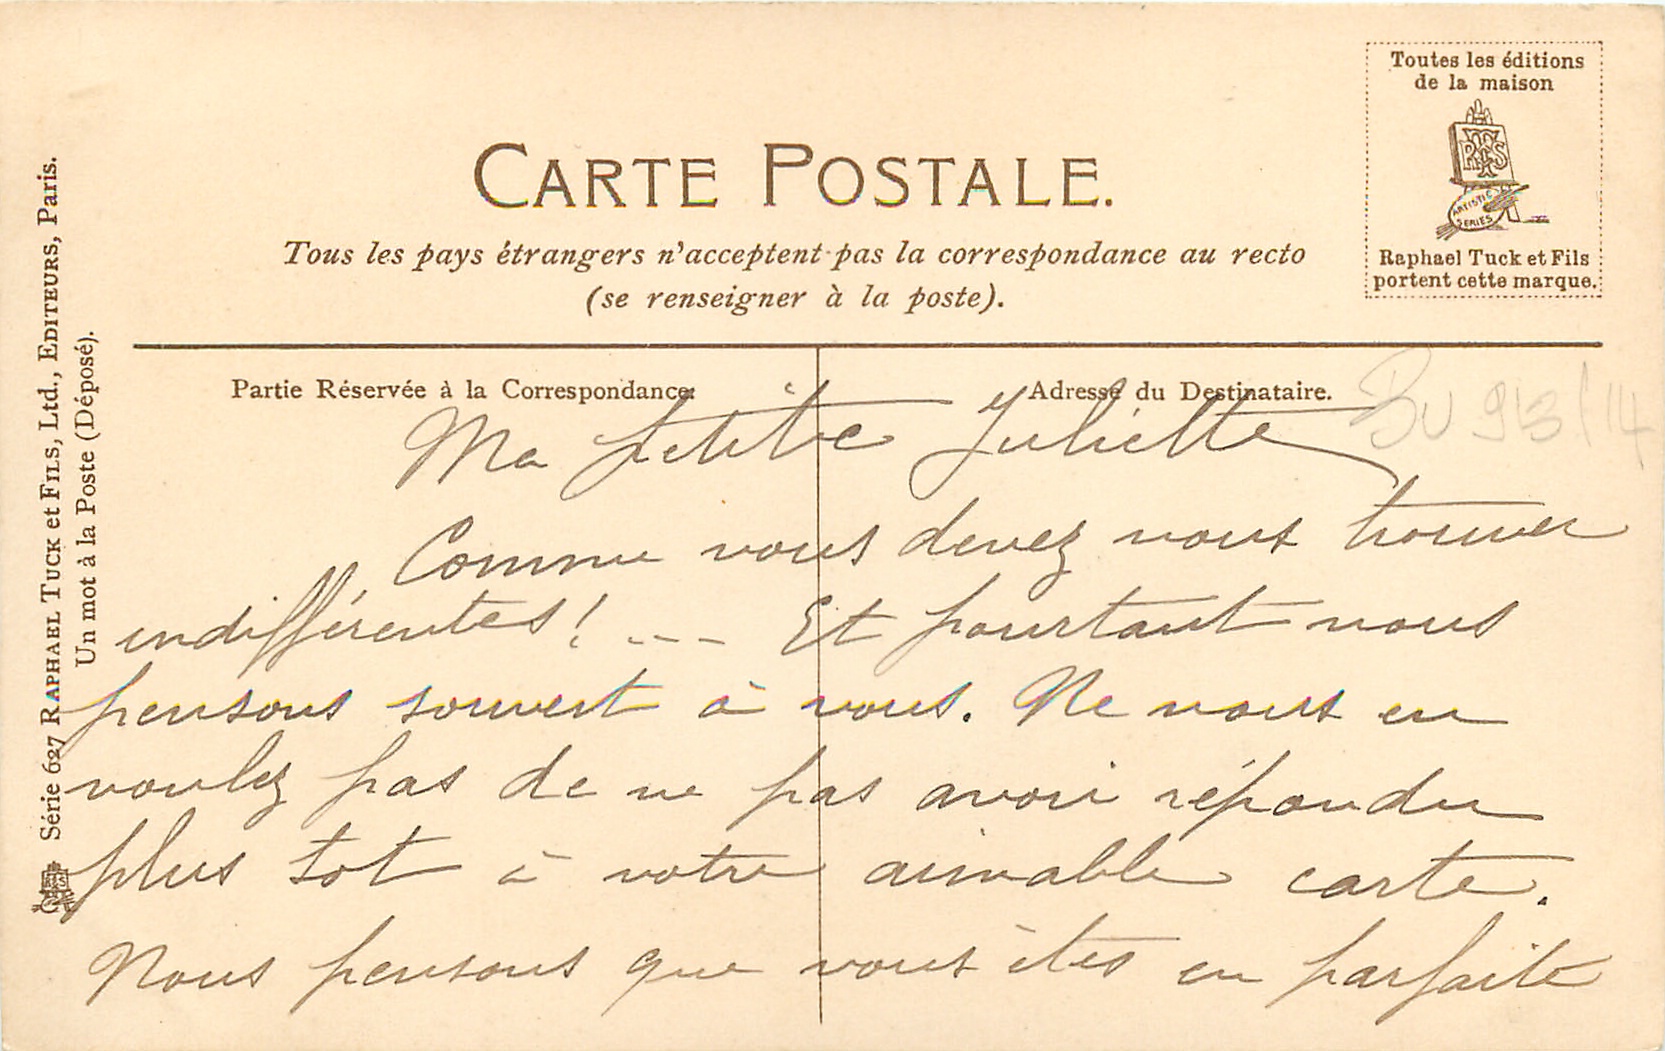 Toutes les éditions
de la maison
ARTISTIC
SERIES
Raphael Tuck et Fils
portent cette marque.
CARTE POSTALE.
Tous les pays étrangers n'acceptent pas la correspondance au recto
(se renseigner à la poste).
Série 627 RAPHAEL TUCK et FILS, Ltd., EDITEURS, Paris.
Un mot à la Poste (Déposé).
Partie Réservée à la Correspondance.
Adresse du Destinataire.
Ma petite Juliette
Comme vous devez nous trouver
indifférentes! --- Et pourtant nous
pensons souvent à vous. Ne nous en
voulez pas de ne pas avoir répondu
plus tot à votre aimable carte.
Nous pensons que vous êtes en parfaite